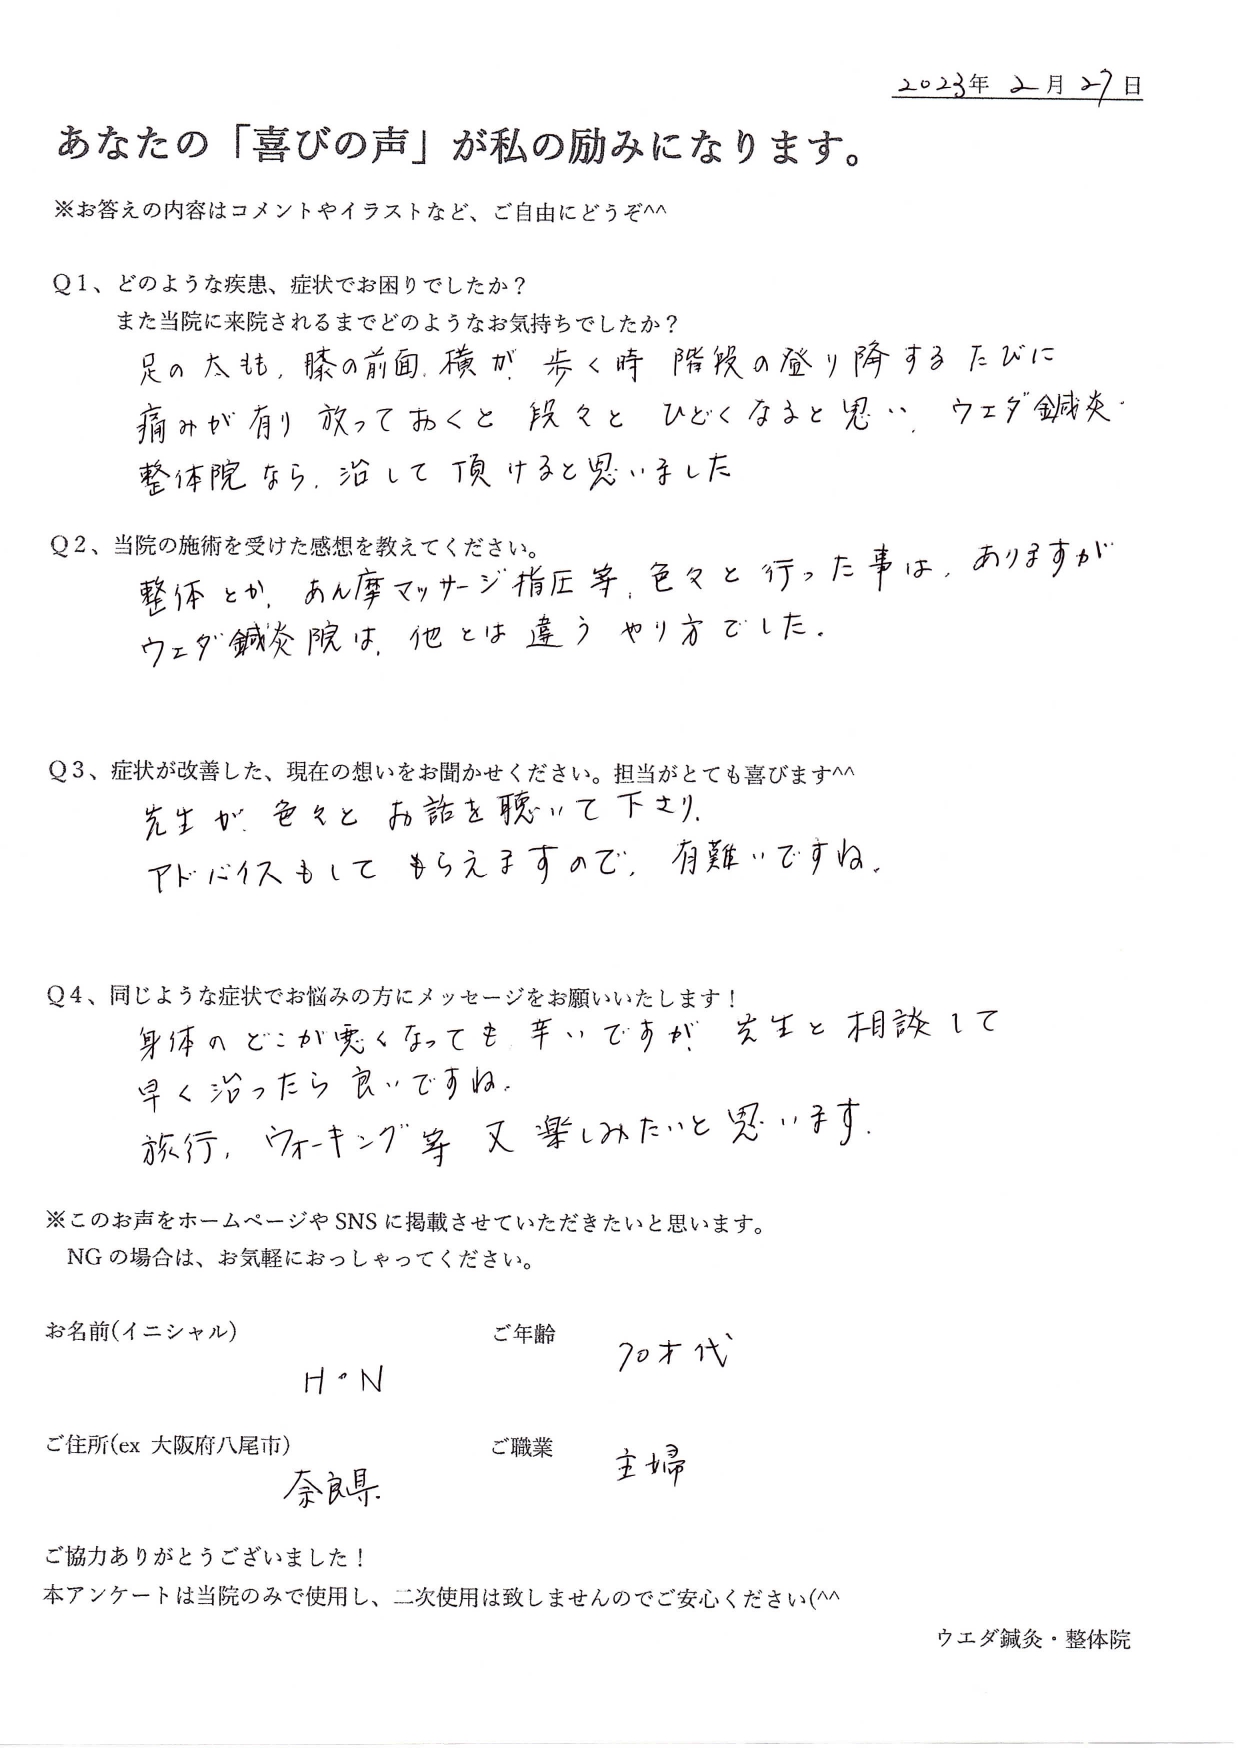 2023年 2月 27日
あなたの「喜びの声」が私の励みになります。
※お答えの内容はコメントやイラストなど、ご自由にどうぞ^^
Q1、どのような疾患、症状でお困りでしたか？
また当院に来院されるまでどのようなお気持ちでしたか？
足の太もも、膝の前面、横が、歩く時 階段の登り降するたびに
痛みが有り 放っておくと 段々と ひどくなると思い、ウエダ鍼灸・
整体院なら、治して頂けると思いました
Q2、当院の施術を受けた感想を教えてください。
整体とか、あん摩マッサージ指圧等、色々と行った事は、ありますが
ウエダ鍼灸院は、他とは違うやり方でした。
Q3、症状が改善した、現在の想いをお聞かせください。担当がとても喜びます^^
先生が、色々とお話を聴いて下さり、
アドバイスもしてもらえますので、有難いですね。
Q4、同じような症状でお悩みの方にメッセージをお願いいたします！
身体のどこが悪くなっても、辛いですが、先生と相談して
早く治ったら良いですね。
旅行、ウォーキング等 又 楽しみたいと思います。
※このお声をホームページやSNSに掲載させていただきたいと思います。
NGの場合は、お気軽におっしゃってください。
お名前(イニシャル) ご年齢
H・N 70才代
ご住所(ex 大阪府八尾市) ご職業
奈良県 主婦
ご協力ありがとうございました！
本アンケートは当院のみで使用し、二次使用は致しませんのでご安心ください(^^
ウエダ鍼灸・整体院